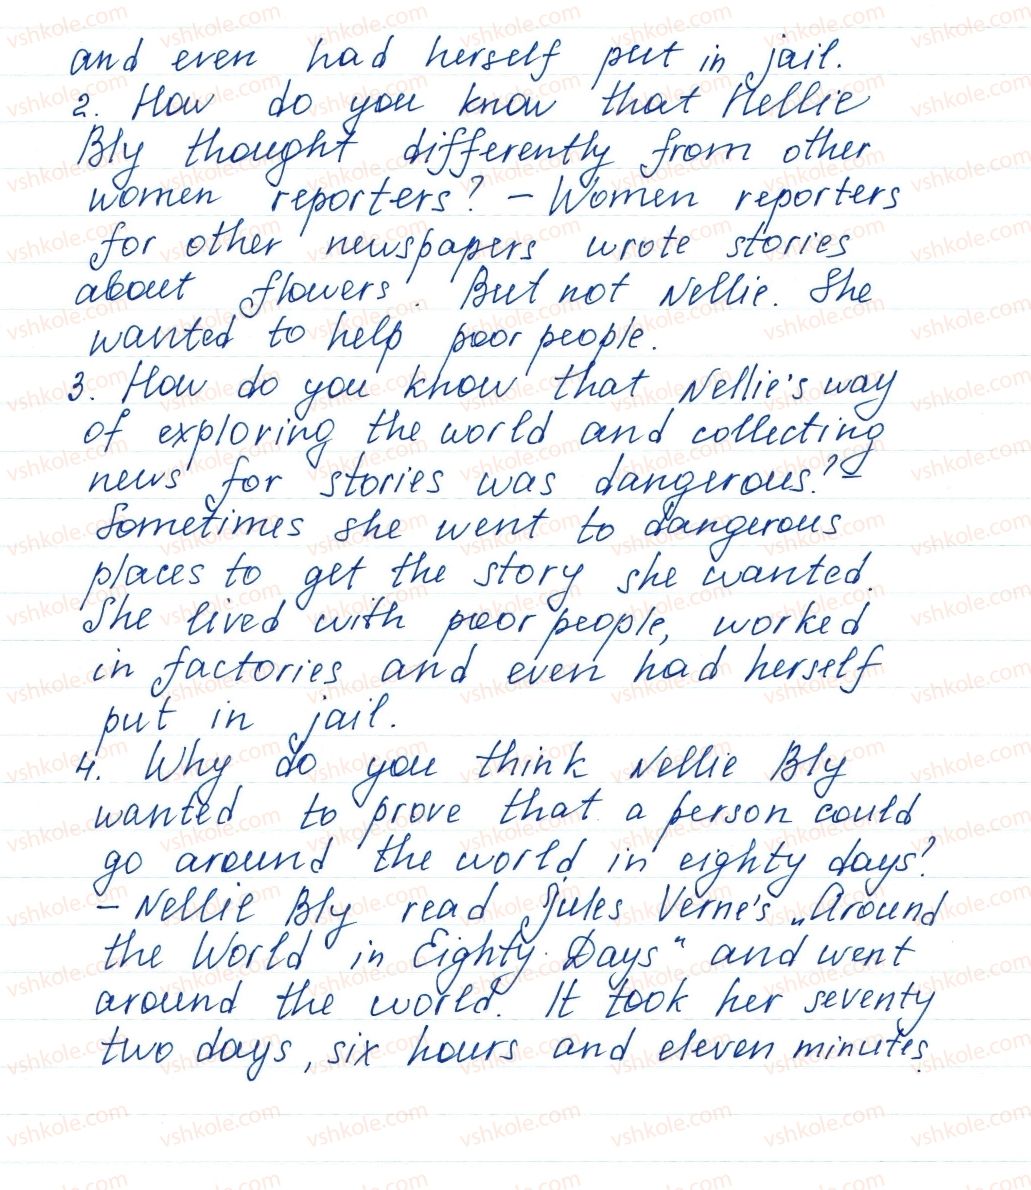 and even had herself put in jail.
2. How do you know that Nellie
Bly thought differently from other
women reporters? – Women reporters
for other newspapers wrote stories
about flowers. But not Nellie. She
wanted to help poor people.
3. How do you know that Nellie's way
of exploring the world and collecting
news for stories was dangerous? –
Sometimes she went to dangerous
places to get the story she wanted.
She lived with poor people, worked
in factories and even had herself
put in jail.
4. Why do you think Nellie Bly
wanted to prove that a person could
go around the world in eighty days?
– Nellie Bly read Jules Verne's „Around
the World in Eighty Days“ and went
around the world. It took her seventy
two days, six hours and eleven minutes.